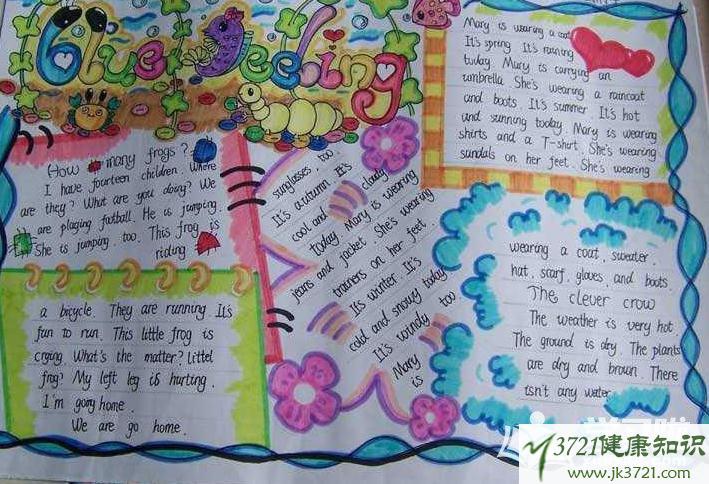 Blue Feeling
How many frogs?
I have fourteen children. Where
are they? What are you doing? We
are playing football. He is jumping.
She is jumping. too. This frog is
riding
a bicycle. They are running It's
fun to run. This little frog is
crying. What's the matter? Littel
frog? My left leg is hurting.
I'm going home.
We are go home.
Mary is wearing a coat
It's spring It's raining
today. Mary is carrying an
umbrella. She's wearing a raincoat
and boots. It's summer. It's hot
and sunning today. Mary is wearing
shirts and a T-shirt. She's wearing
sandals on her feet. She's wearing
sunglasses, too.
It's autumn It's cloudy
cool and
today Mary is wearing
jeans and jacket. She's wearing
trainers on her feet
It's winter. It's
cold and snowy today
It's windy too
Mary is
wearing a coat, sweater,
hat, scarf, gloves, and boots.
The clever crow
The weather is very hot.
The ground is dry. The plants
are dry and brown. There
isn't any water.
3721健康知识
www.jk3721.com